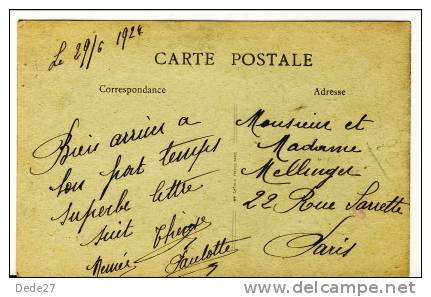 Le 29/6 1924
CARTE POSTALE
Correspondance
Adresse
Bien arrivés a
bon port temps
superbe lettre
suit Thérèse
Paulotte
Monsieur et
Madame
Mellinger
22 Rue Sarrette
Paris
Dede27
©delcampe.net